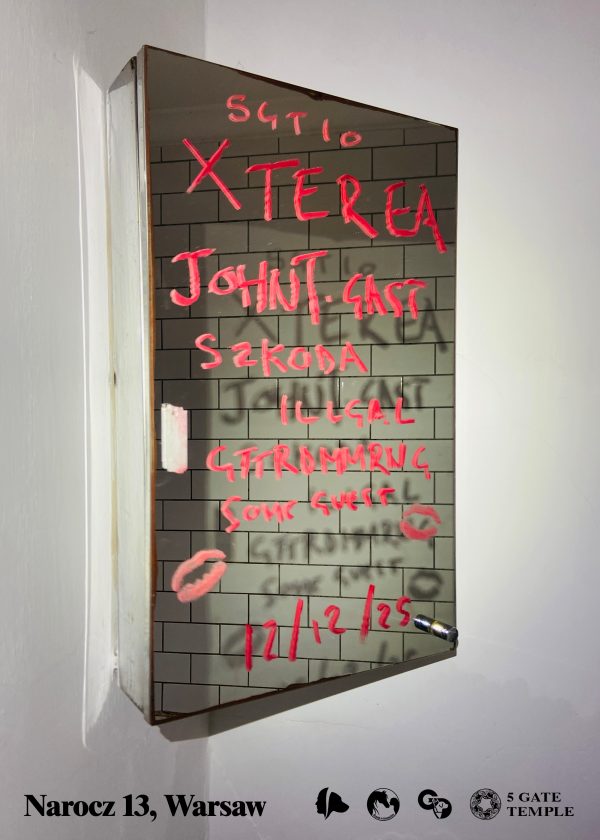 5GT10
XTEREA
JOHNT. GAST
SZKODA
ILLGAL
GFTRDMMRNG
SOME GUEST
12/12/25
Narocz 13, Warsaw
5 GATE
TEMPLE